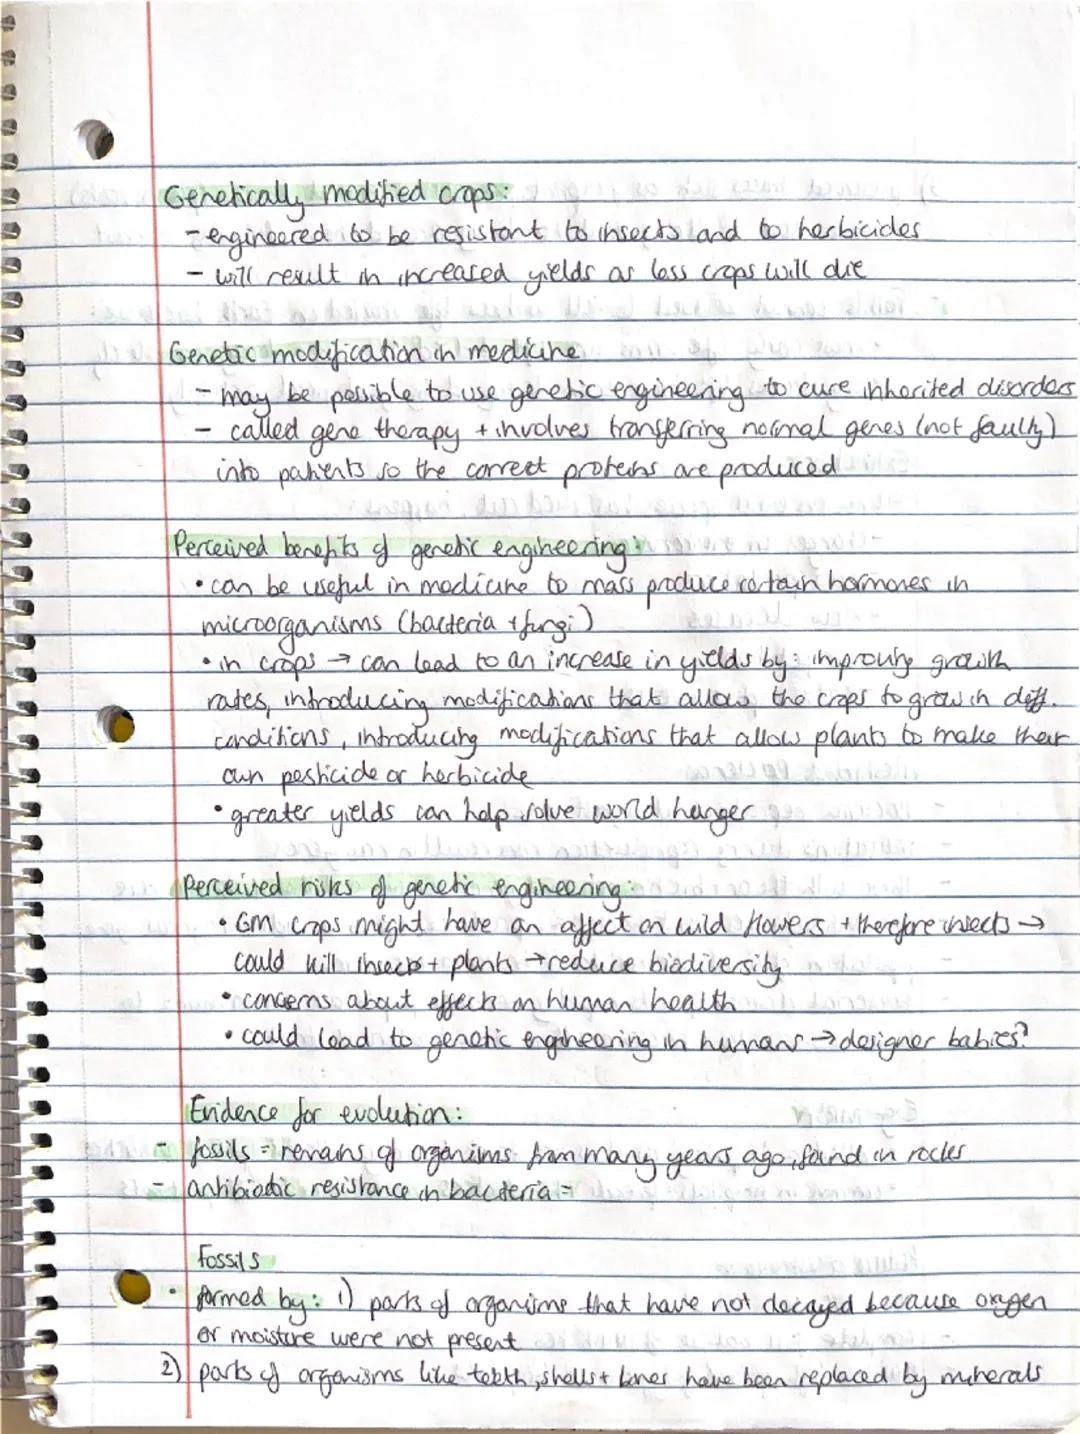 Genetically modified crops:
- engineered to be resistant to insects and to herbicides
- will result in increased yields as less crops will die
Genetic modification in medicine
- may be possible to use genetic engineering to cure inherited disorders
- called gene therapy + involves transferring normal genes (not faulty)
into patients so the correct proteins are produced
Perceived benefits of genetic engineering:
• can be useful in medicine to mass produce certain hormones in
microorganisms (bacteria + fungi)
• in crops → can lead to an increase in yields by: improving growth
rates, introducing modifications that allow the crops to grow in diff.
conditions, introducing modifications that allow plants to make their
own pesticide or herbicide
• greater yields can help solve world hunger
Perceived risks of genetic engineering:
• GM crops might have an affect on wild flowers + therefore insects →
could kill insects + plants → reduce biodiversity
• concerns about effects on human health
• could lead to genetic engineering in humans → designer babies?
Evidence for evolution:
- fossils = remains of organisms from many years ago, found in rocks
- antibiotic resistance in bacteria =
Fossils
• formed by: 1) parts of organisms that have not decayed because oxygen
or moisture were not present
2) parts of organisms like teeth, shells + bones have been replaced by minerals